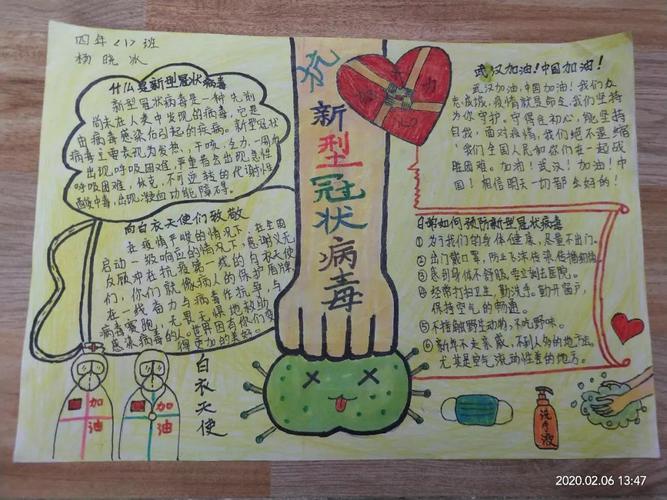 四年〈1〉班
杨晓冰
什么是新型冠状病毒
新型冠状病毒是一种先前
尚未在人类中发现的病毒，它是
由病毒感染后引起的疾病。新型冠状
病毒主要表现为发热，干咳，乏力，一周后
出现呼吸困难，严重者会出现急性
呼吸困难，休克，不可逆转的代谢性
酸中毒，出现凝血功能障碍。
向白衣天使们致敬
在疫情严峻的情况下，在全国
启动一级响应的情况下，感谢义无
反顾冲在抗疫第一线的白衣天使
们，你们就像病人的保护盾牌，
在一线奋力与病毒作抗争，与
病毒赛跑，无畏无惧地救助
感染病毒的人，世界因有你们变
得更加的美好。
白衣天使
加油
加油
抗
新
型
冠
状
病
毒
武汉加油！中国加油！
武汉加油，中国加油！我们众
志成城，疫情就是命生，我们坚持
为你守护，守得住初心，能坚持
自我，面对疫情，我们绝不退缩
我们全国人民和你们在一起战
胜困难。加油！武汉！加油！中
国！相信明天一切都会好的！
日常如何预防新型冠状病毒
①为了我们的身体健康，尽量不出门。
②出门戴口罩，防止飞沫传染，传播病毒。
③感到身体不舒服，要立刻去医院。
④经常打扫卫生，勤洗手，勤开窗户，
保持空气的畅通。
⑤不接触野生动物，不吃野味。
⑥新年不走亲戚，不到人多的地方去，
尤其是空气流动性差的地方。
洗手液
2020.02.06 13:47